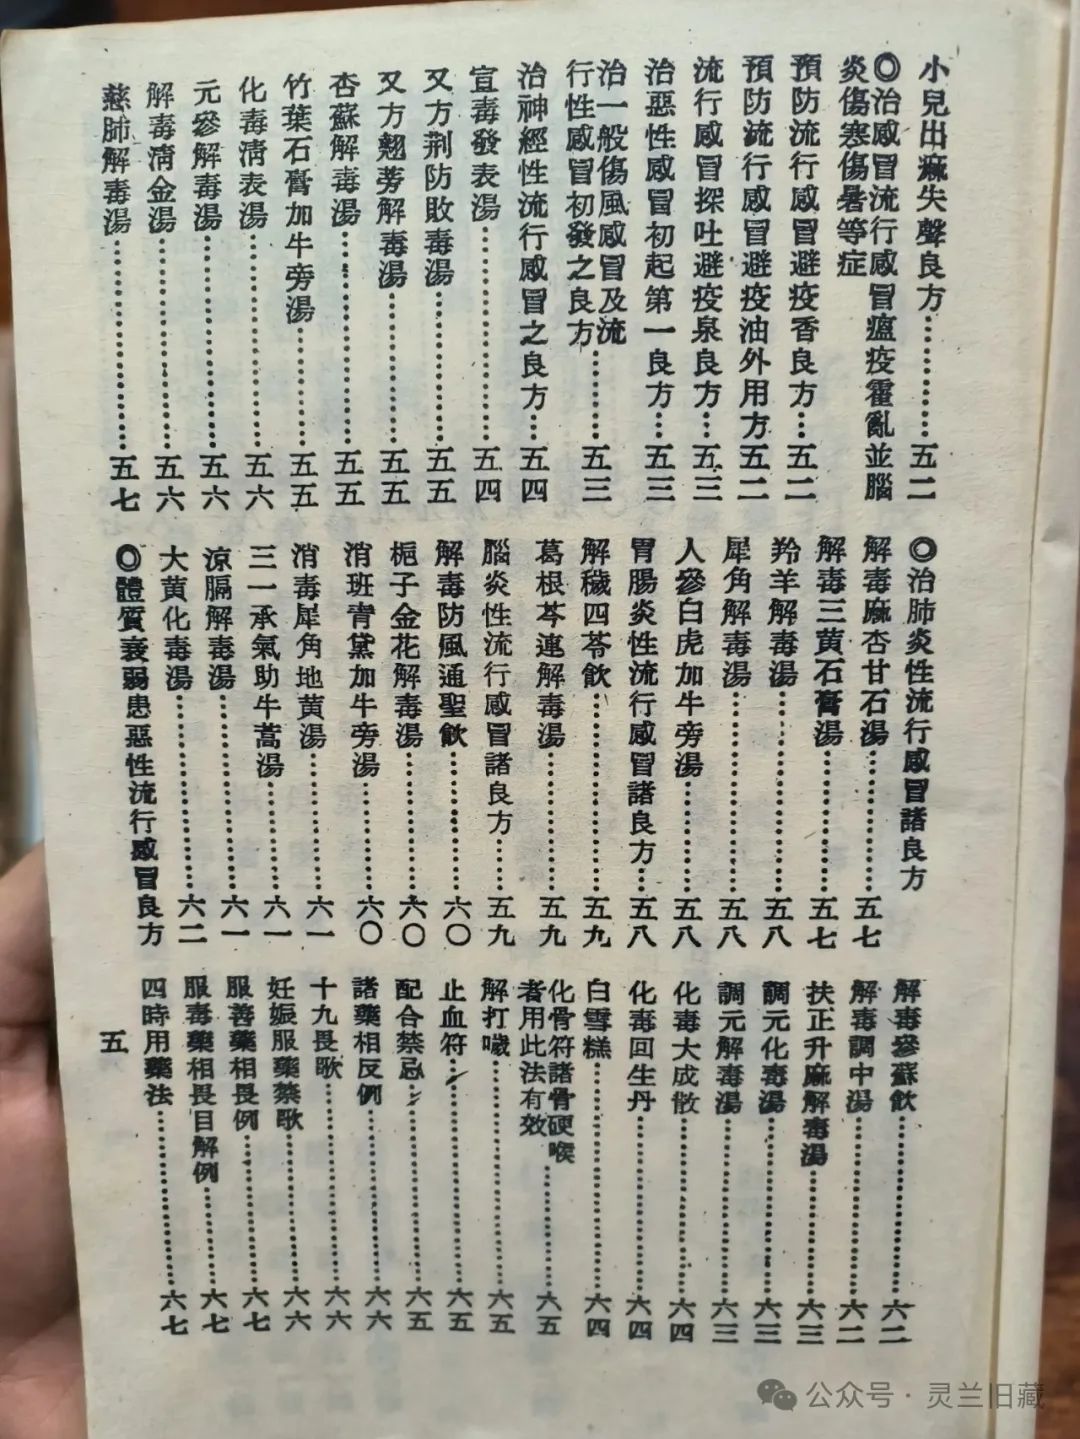 小兒出痲失聲良方…………五二
◎治感冒流行感冒瘟疫霍亂並腦
炎傷寒傷暑等症
預防流行感冒避疫香良方…五二
預防流行感冒避疫油外用方五二
流行感冒探吐避疫泉良方…五三
治惡性感冒初起第一良方…五三
治一般傷風感冒及流
行性感冒初發之良方…………五三
治神經性流行感冒之良方…五四
宣毒發表湯…………五四
又方荆防敗毒湯…………五五
又方翹蒡解毒湯…………五五
杏蘇解毒湯…………五五
竹葉石膏加牛旁湯…………五五
化毒清表湯…………五六
元參解毒湯…………五六
解毒清金湯…………五六
慈肺解毒湯…………五七
◎治肺炎性流行感冒諸良方
解毒麻杏甘石湯…………五七
解毒三黃石膏湯…………五七
羚羊解毒湯…………五八
犀角解毒湯…………五八
人參白虎加牛旁湯…………五八
胃腸炎性流行感冒諸良方…五八
解穢四苓飲…………五九
葛根芩連解毒湯…………五九
腦炎性流行感冒諸良方…五九
解毒防風通聖飲…………六〇
梔子金花解毒湯…………六〇
消班青黛加牛旁湯…………六〇
消毒犀角地黃湯…………六一
三一承氣助牛蒿湯…………六一
涼膈解毒湯…………六一
大黃化毒湯…………六二
◎體質衰弱患惡性流行感冒良方
解毒參蘇飲…………六二
解毒調中湯…………六二
扶正升麻解毒湯…………六三
調元化毒湯…………六三
調元解毒湯…………六三
化毒大成散…………六四
化毒回生丹…………六四
白雪糕…………六四
化骨符諸骨硬喉
者用此法有效…………六五
解打嘰…………六五
止血符…………六五
配合禁忌…………六五
諸藥相反例…………六六
十九畏歌…………六六
妊娠服藥禁歌…………六六
服善藥相畏例…………六七
服毒藥相畏目解例…………六七
四時用藥法…………六七
五
公众号·灵兰旧藏